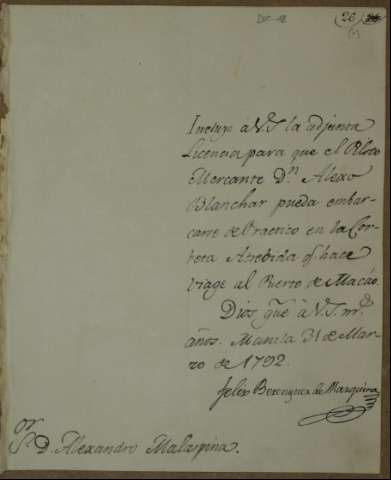 Doc 18
26
(1)
Incluyo à V.S. la adjunta
Licencia para que el Piloto
Mercante D.n Alexo
Blanchar pueda embar-
carse de Practico en la Cor-
beta Atrebida q.e hace
viage al Puerto de Macáo.
Dios gue à V.S. m.s
años. Manila 31 de Mar-
zo de 1792.
Felix Berenguer de Marquina
S.or D. Alexandro Malaspina.